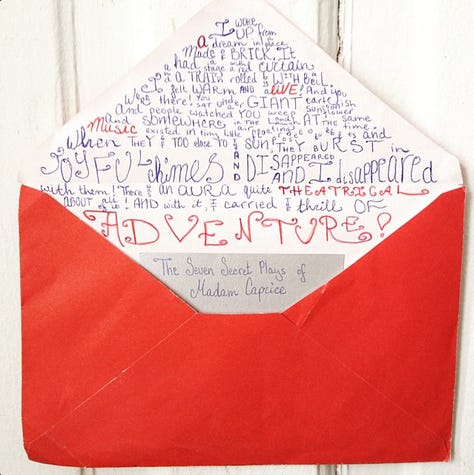 I woke
UP from
a dream in a place
Made of BRICK. It
had a stage with a red curtain
& a TRAIN rolled by WITH a Bell.
I felt WARM AND aLiVE! And you
were there! YOU SAT under GIANT
and people watched YOU weep sunshine sunflower
and SOMEWHERE IN THE Land, AT THE SAME TIME,
Music existed in tiny little air floating and
when THEY got TOO close TO the SUN, THEY BURST in
JOYFUL chimes AND DISAPPEARED AND I disappeared
with them! There is an AURA quite THEATRICAL
ABOUT all of it! AND with it, I carried a thrill OF
ADVENTURE!
The Seven Secret Plays of
Madam Caprice